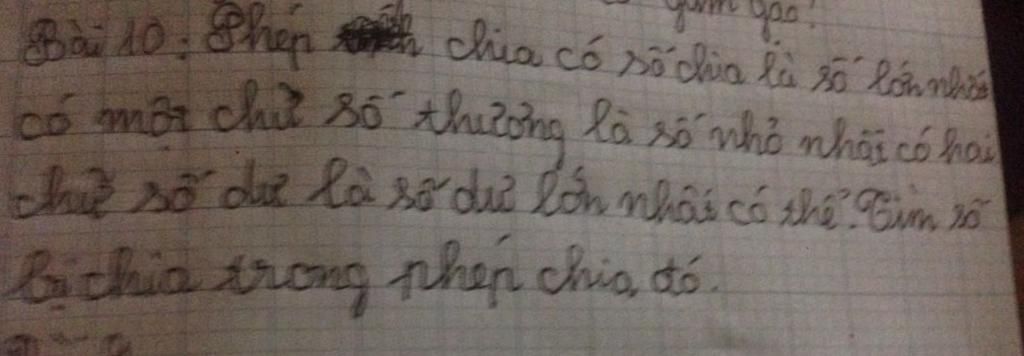 gam gao?
Bài 10: Phép chia có số chia là số lớn nhất
có một chữ số thương là số nhỏ nhất có hai
chữ số dư là số dư lớn nhất có thể. Tìm số
bị chia trong phép chia đó.